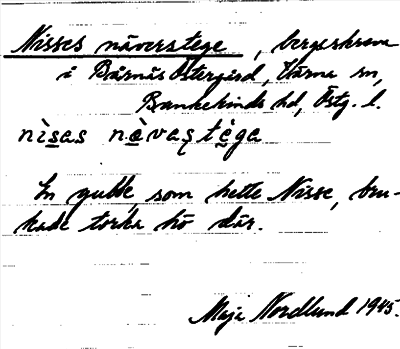 Nisses näverstege, bergsskreva
i Bäsnäs Östergård, Värna sn,
Bankekinds hd, Östg. l.
nìsas nàvastège
En gubbe, som hette Nisse, bru-
kade torka hö där.
Maja Nordlund 1945.